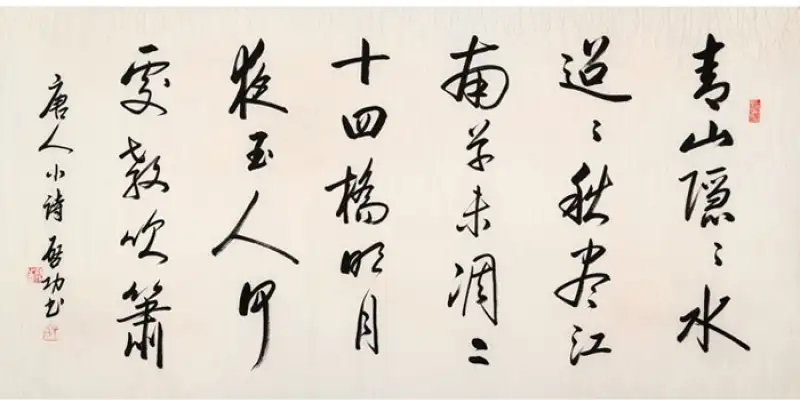 青山隐〻水
迢〻秋尽江
南草未凋二
十四橋明月
夜玉人何
處教吹簫
唐人小詩 啓功书